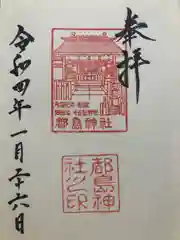 奉拝
都島神社
都島神
社之印
令和四年一月二十六日